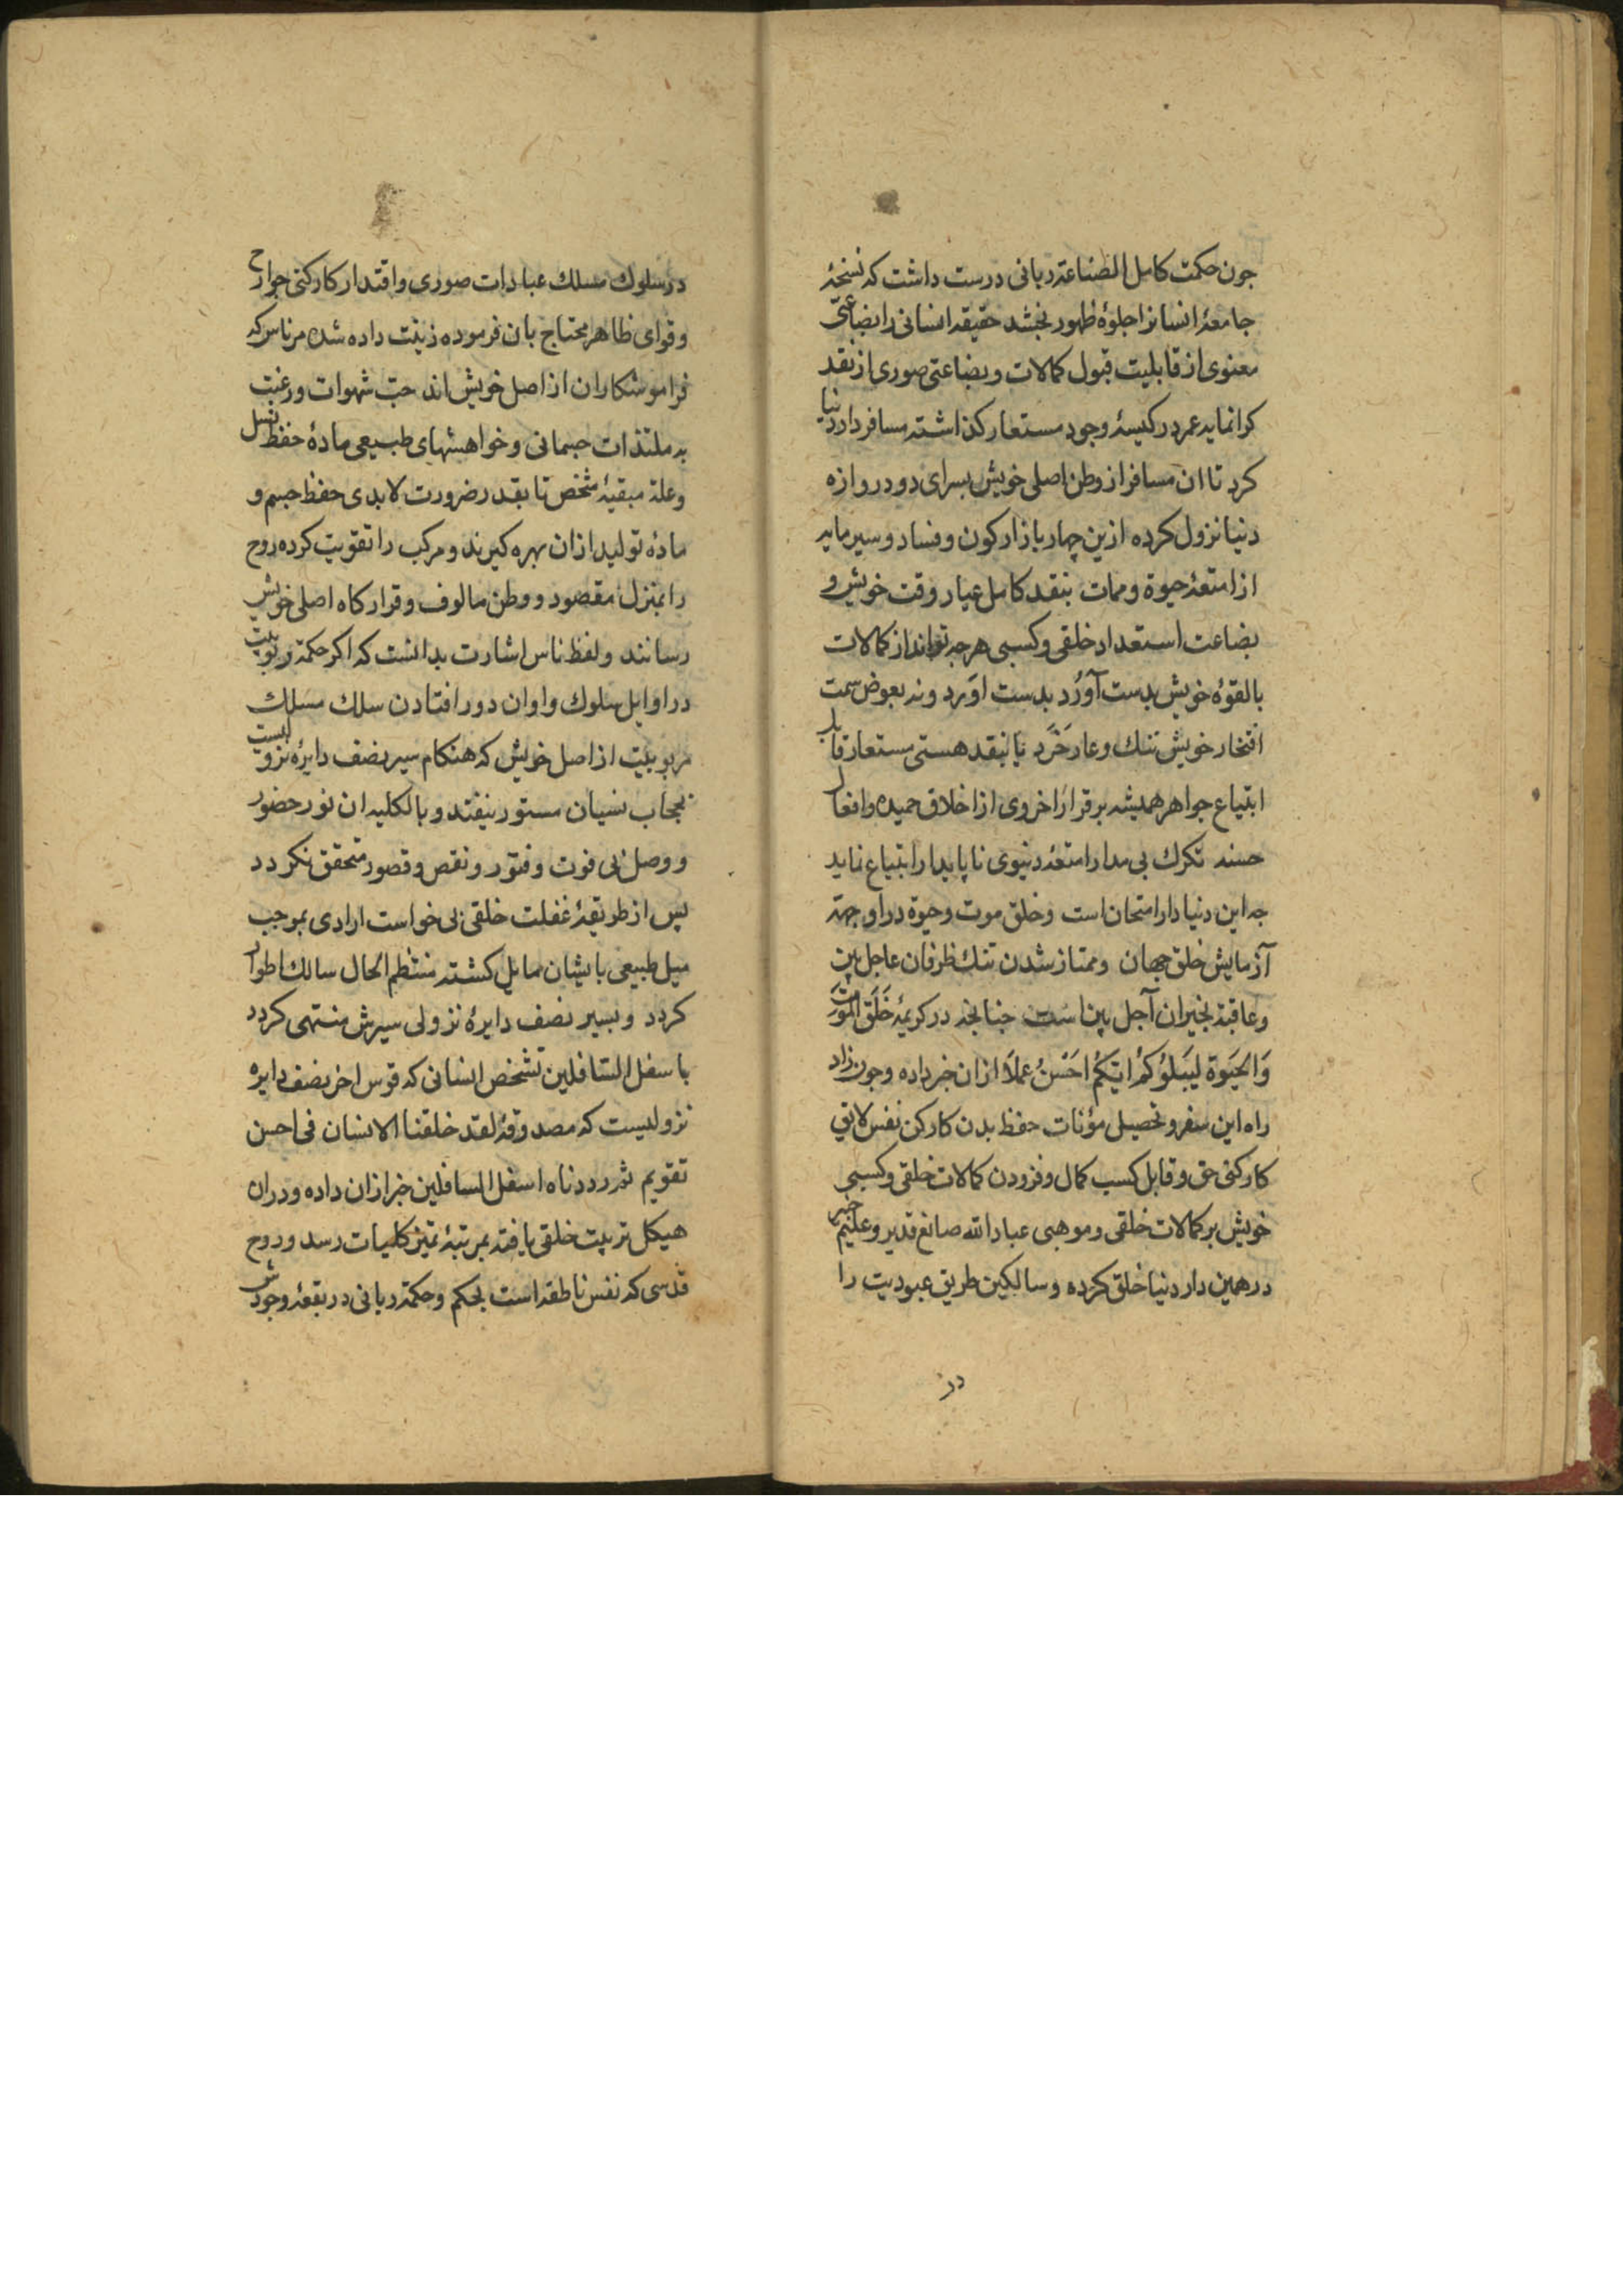 جون حكمت كامل الصناعة ربانى درست داشت كه نسخهٔ
جامعهٔ انسانرا جلوهٔ ظهور بخشد حقيقه انسانى را بضاعتى
معنوى از قابليت قبول كمالات وبضاعتى صورى از نقد
كرانمايه عمر در كيسهٔ وجود مستعار كذاشته مسافر دار دنيا
كرد تا ان مسافر از وطن اصلى خويش بسراى دو دروازه
دنيا نزول كرده ازين چهار بازار كون وفساد وسير مايه
از امتعهٔ حيوة وممات بنقد كامل عيار وقت خويش و
بضاعت استعداد خلقى وكسبى هرجه تواند از كمالات
بالقوهٔ خويش بدست آورد بدست اورد ونه بعوض سمت
افتخار خويش ننك وعار خرد يا بنقد هستى مستعار قابل
ابتياع جواهر هميشه برقرار اخروى از اخلاق حميده وافعال
حسنه تكرك بى مدار امتعهٔ دنيوى ناپايدار ابتياع نمايد
جه اين دنيا دار امتحان است وخلق موت وحيوة در او جهة
آزمايش خلق جهان وممتاز شدن تنك ظرفان عاجل بين
وعاقبة بخيران آجل بين است جنانجه در كريمهٔ خَلَقَ المَوتَ
وَالحَيَوةَ لِيَبلُوَكُم اَيُّكُم اَحسَنُ عَمَلًا ازان خبر داده وجون زاد
راه اين سفر وتحصيل مؤنات حفظ بدن كاركن نفس لايق
كاركنى حق وقابل كسب كمال وفزودن كمالات خلقى وكسبى
خويش بر كمالات خلقى وموهبى عباد الله صانع قدير وعليم خبير
در همين دار دنيا خلق كرده وسالكين طريق عبوديت را
در
در سلوك مسلك عبادات صورى واقتدار كاركنى جوارح
وقواى ظاهر محتاج بان فرموده زينت داده شده مر ناس كه
فراموشكاران از اصل خويش اند حبّ شهوات ورغبت
به ملتذات جسمانى وخواهشهاى طبيعى مادهٔ حفظ نسل
وعلة مبقيهٔ شخص تا بقدر ضرورت لابدى حفظ جسم و
مادهٔ توليد ازان بهره كيرند ومركب را تقويت كرده روح
را بمنزل مقصود ووطن مالوف وقراركاه اصلى خويش
رسانند ولفظ ناس اشارت بدانست كه اكر حكمة ربوبيت
در اوايل سلوك واوان دور افتادن سلك مسلك
مربوبيت از اصل خويش كه هنكام سير نصف دايرهٔ نزوليست
بحجاب نسيان مستور نيفتد وبالكليه ان نور حضور
ووصل بى فوت وفتور ونقص وقصور متحقق نكردد
پس از طريقهٔ غفلت خلقى بى خواست ارادى بموجب
ميل طبيعى بايشان مايل كشته منتظم الحال سالك اطوار
كردد وبسير نصف دايرهٔ نزولى سيرش منتهى كردد
باسفل السّافلين تشخص انسانى كه قوس اخر نصف دايره
نزوليست كه مصدوقهٔ لقد خلقنا الانسان فى احسن
تقويم ثم رددناه اسفل السافلين خبر ازان داده ودران
هيكل تربيت خلقى يافته بمرتبهٔ تميز كليات رسد وروح
قدسى كه نفس ناطقه است بحكم وحكمة ربانى در بقعهٔ وجودش